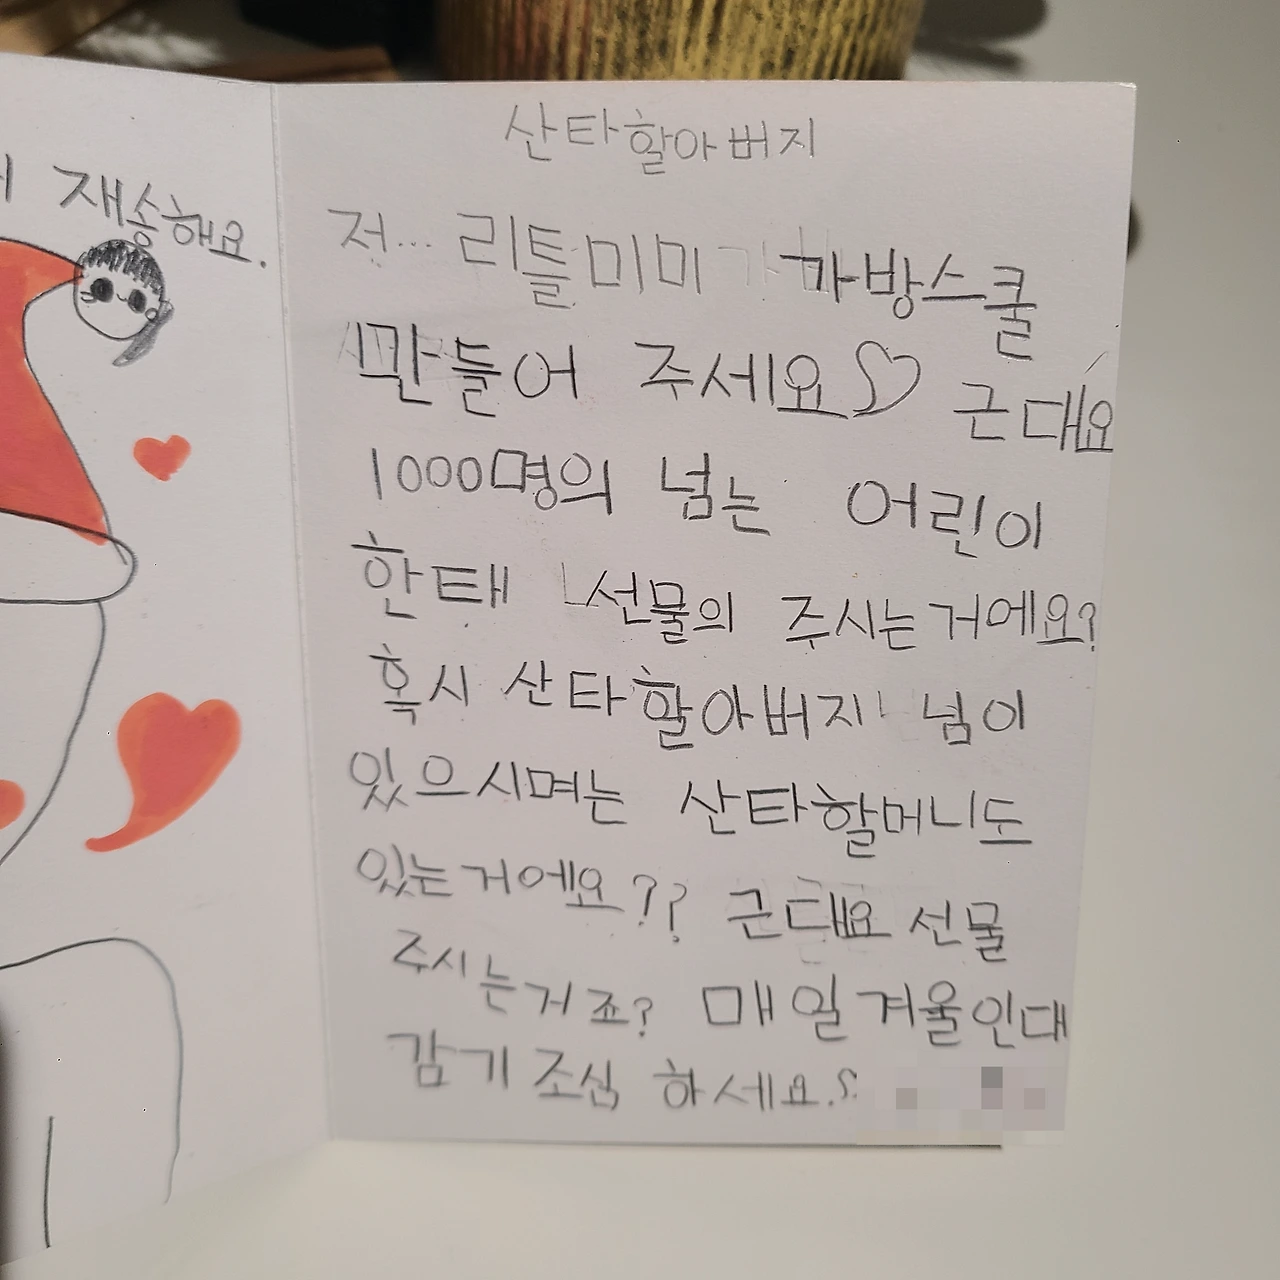 재송해요.
산타할아버지
저... 리틀미미 가방스쿨
만들어 주세요♡ 근대요
1000명의 넘는 어린이
한태 선물의 주시는거에요?
혹시 산타할아버지 넘이
있으시며는 산타할머니도
있는거에요?? 근대요 선물
주시는거죠? 매일겨울인대
감기조심 하세요.